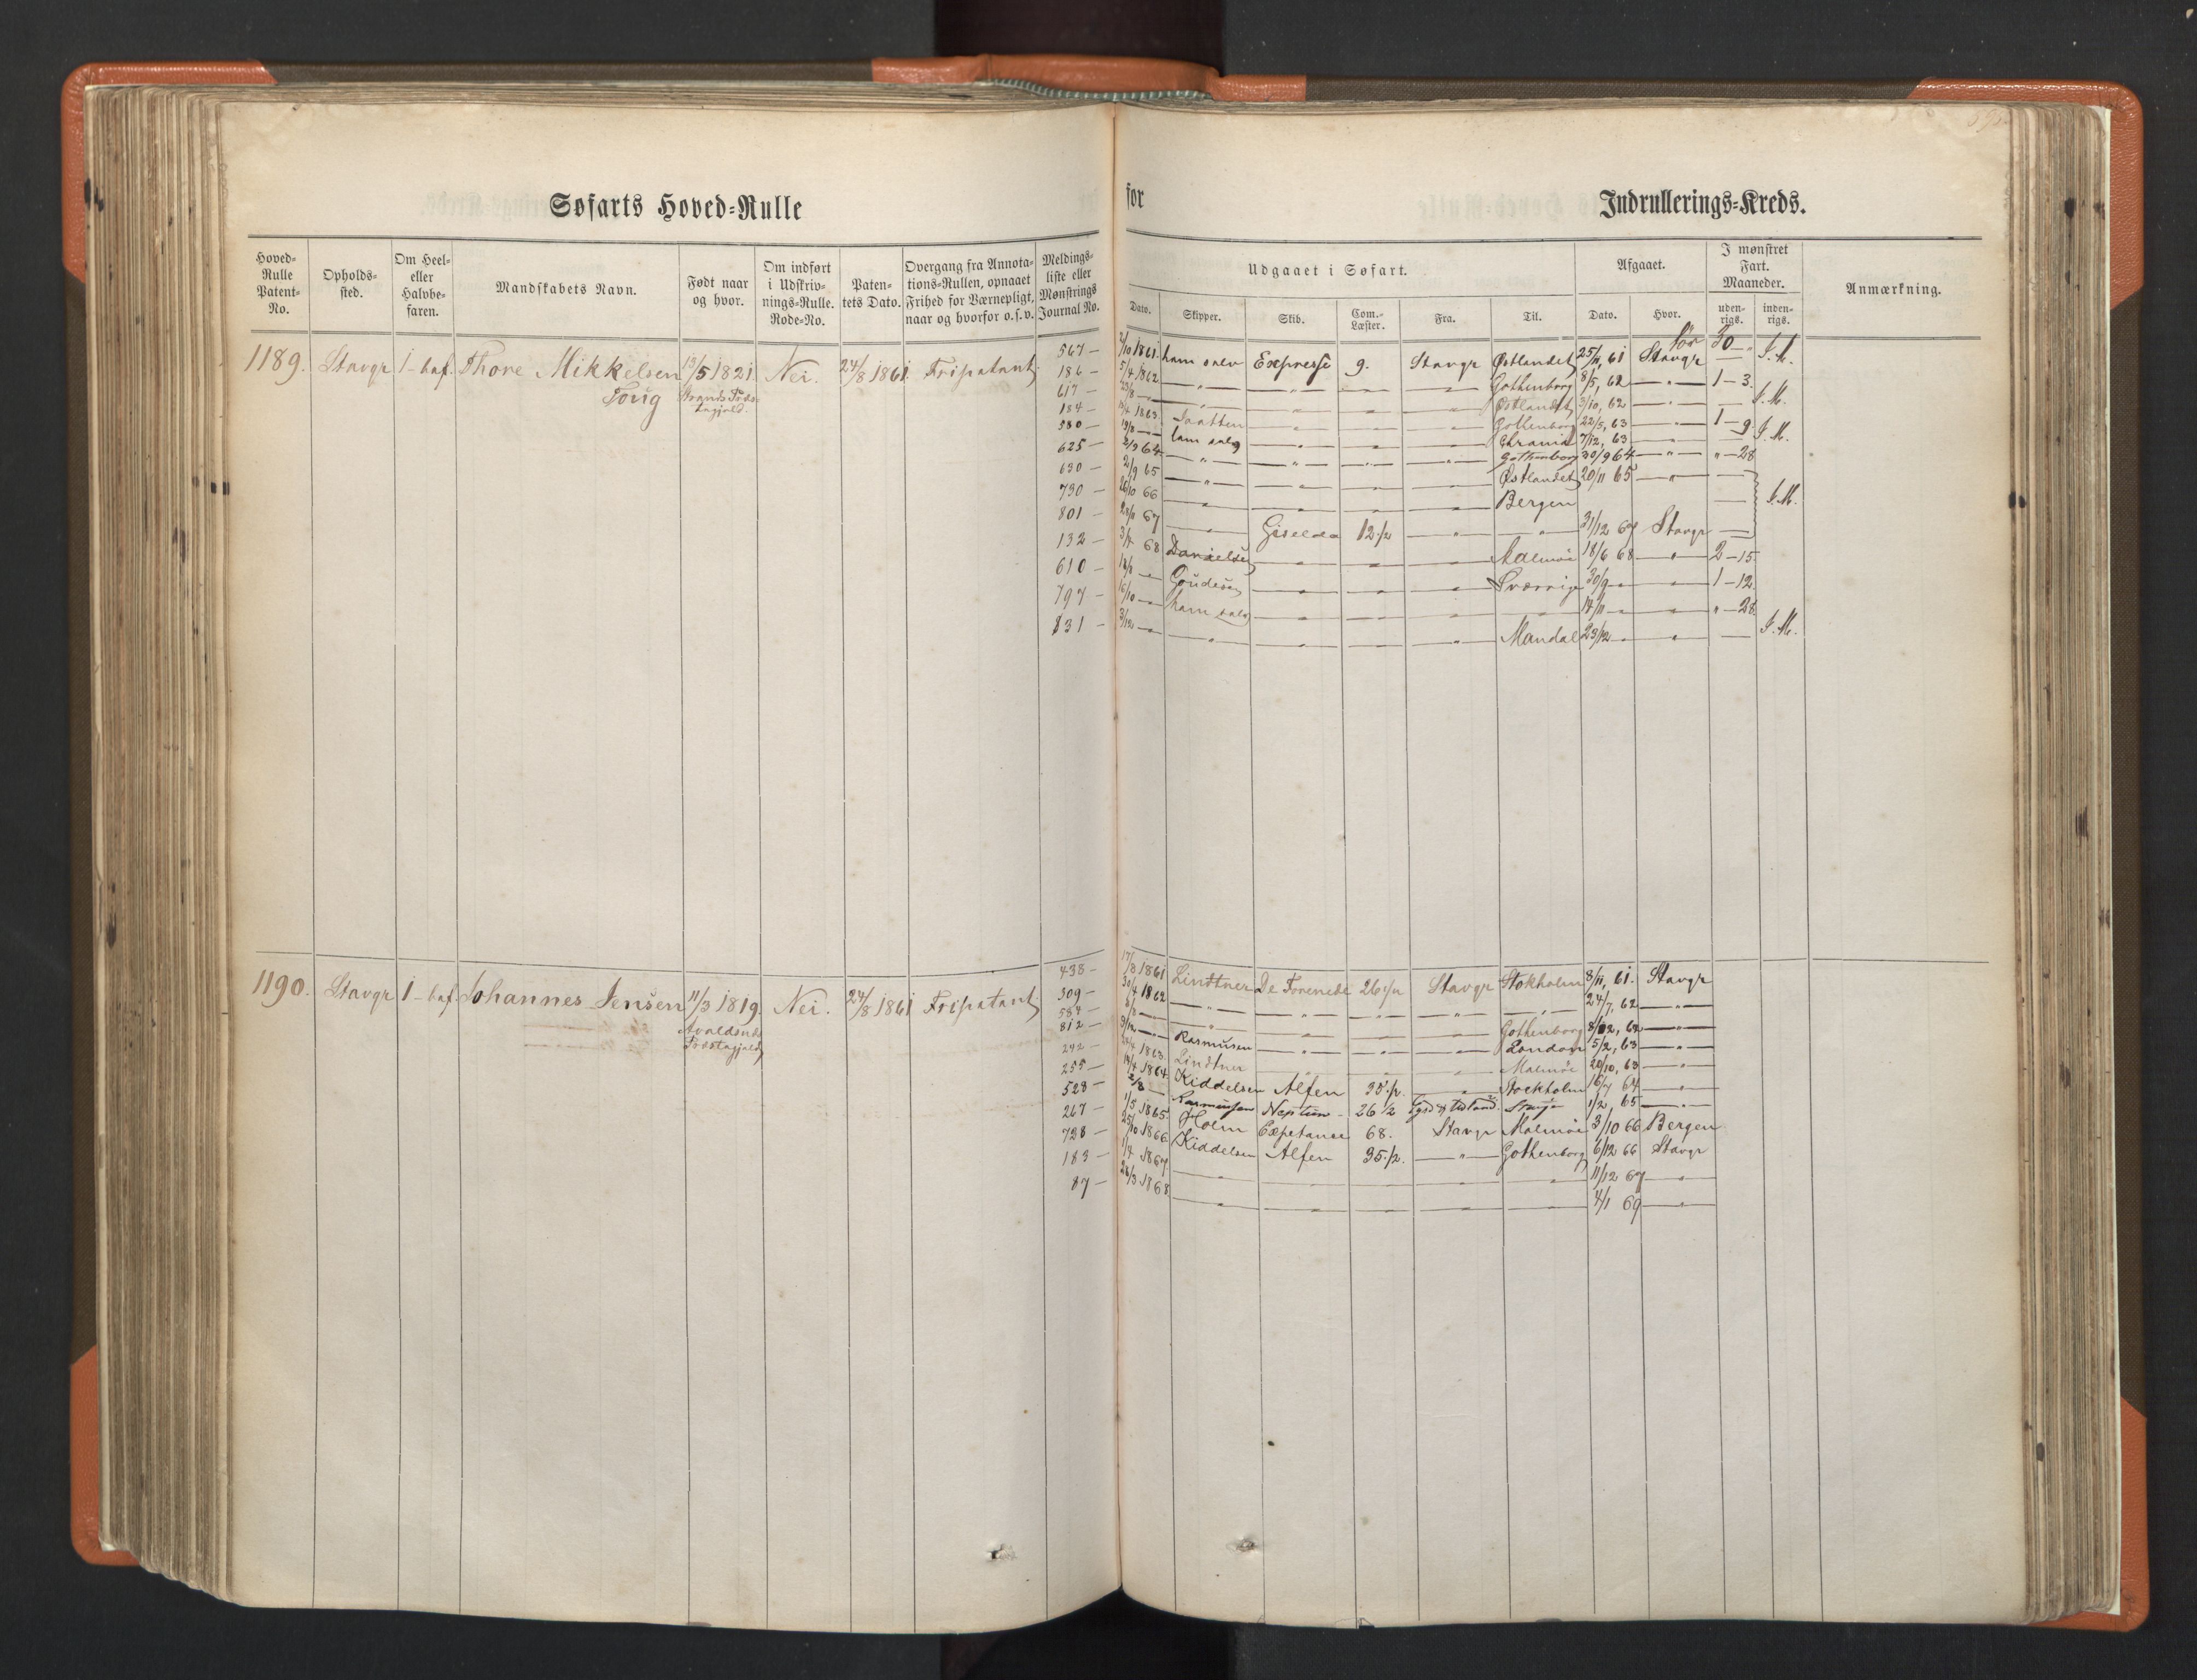 Søfarts Hoved=Rulle
for Indrullerings=Kreds.
Hoved=Rulle Patent=No.
Opholds=sted.
Om Heel= eller Halvbe=faren.
Mandskabets Navn.
Født naar og hvor.
Om indført i Udskriv=nings=Rulle. Rode=No.
Paten=tets Dato.
Overgang fra Annota=tions=Rullen, opnaaet Frihed for Værnepligt, naar og hvorfor o. s. v.
Meldings=liste eller Mønstrings Journal No.
Udgaaet i Søfart.
Dato. Skipper. Skib. Com.=Læster. Fra. Til.
Afgaaet.
Dato. Hvor.
I mønstret Fart. Maaneder.
uden=rigs. inden=rigs.
Anmærkning.
1189. Stavgr 1-baf. Thore Mikkelsen 13/5 1821. Nei. 24/8 1861. Fripatent
Strands Præs=
Toug tegjeld.
567 - 2/10 1861. ham selv Expresse 9. Stavgr Østlandet 25/11, 61 Stavgr I. M.
186 - 5/4 1862 — " — Gothenborg 8/5, 62 — " — 1 - 3.
617 - — " — Østlandet 3/10, 62 — " — I. M.
184 - 1863. Gothenborg 22/5, 63 — " — 1 - 9
580 - ham selv 7/12, 63 — " — I. M.
625 - 2/9 64 — " — Gothenborg 30/9 64 — " — " - 28
630 - 2/9 65 — " — Østlandet 20/11 65 — " —
730 - 26/10 66 — " — Bergen I. M.
801 - 67 — " — Giselda 12 1/2 — " — 31/12 67 Stavgr
132 - 3/4 68 Danielsen — " — Malmöe 18/6 68 — " — 2 - 15.
610 - Goudesen — " — Sverrige 30/9 — " — 1 - 12.
797 - 16/10 — ham selv — " — 14/11 — " — " - 28
831 - 3/12 — " — Mandal 23/12 — " — I. M.
1190. Stavgr 1-baf. Johannes Jensen 11/3 1819. Nei. 24/8 1861 Fripatent.
Avaldsnes
Præstegjeld
438 - 17/8 1861 Lindtner De Forenede 26 1/2 Stavgr Stokholm 8/11, 61. Stavgr
309 - 30/4 1862 — " — 24/7, 62 — " —
587 - — " — Gothenborg 62 — " —
812 - 9/12 — Rasmusen — " — London 5/2, 63 — " —
242 - 1863. Lindtner Malmöe 20/10, 63 — " —
255 - 14/4 1864. Kiddelsen Alfen 35 1/2. Stockholm 16/7 64 — " —
528 - 2/8 — Rasmusen Neptun - 26 1/2 Stavgr 1/2 65 — " —
267 - 1/5 1865 Holm Exspetanse 68. Stavgr Malmöe 3/10 66 Bergen
728 - 25/10 1866. Kiddelsen Alfen 35 1/2. — " — Gothenborg 6/12 66 Stavgr
183 - 1/4 1867 — " — 11/12 67 — " —
87 - 28/3 1868 — " — 4/1 69 — " —